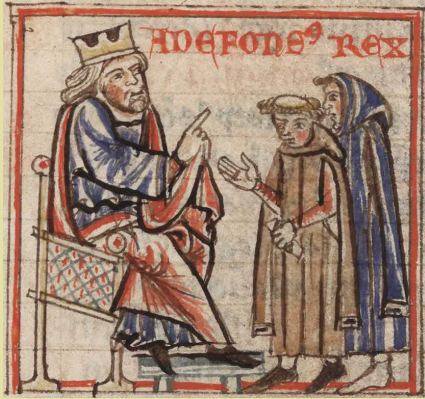 ADEFONSꝰ REX